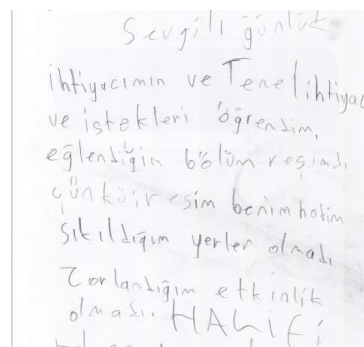 Sevgili günlük
ihtiyacımın ve Temel ihtiyaç
ve istekleri öğrendim,
eğlendiğim bölüm resimdi
çünkü resim benim hobim
sıkıldığım yerler olmadı
Zorlandığım etkinlik
olmadı.